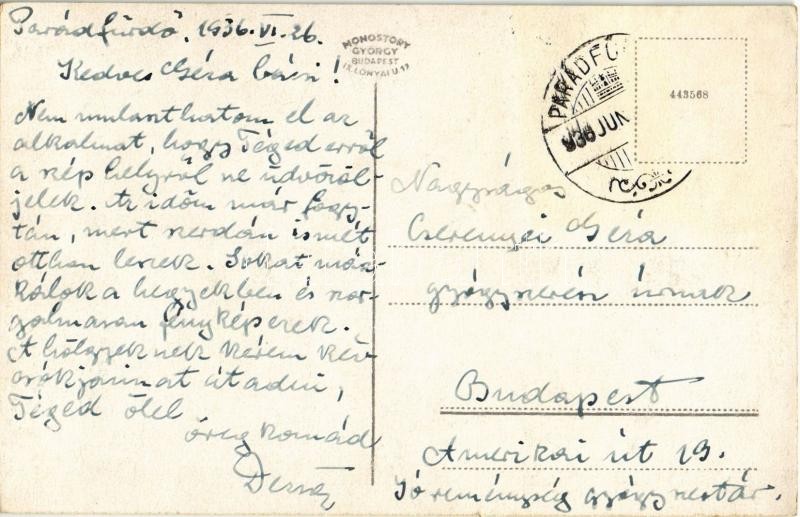 Parádfürdő, 1936. VI. 26.
Kedves Géza bácsi!
Nem mulaszthatom el az
alkalmat, hogy Téged erről
a szép helyről ne üdvözöl-
jelek. Az időm már fogy-
tán, mert szerdán ismét
otthon leszek. Sokat mász-
kálok a hegyekben és szor-
galmasan fényképezek.
A hölgyeknek kérem kéz-
csókjaimat átadni,
Téged ölel
öreg komád
MONOSTORY
GYÖRGY
BUDAPEST
IX. LÓNYAI U. 17
PARÁDFÜ
936 JUN
443568
Nagyságos
Cserenyei Géza
gyógyszerész úrnak
Budapest
Amerikai út 19.
Jó reménység gyógyszertár.